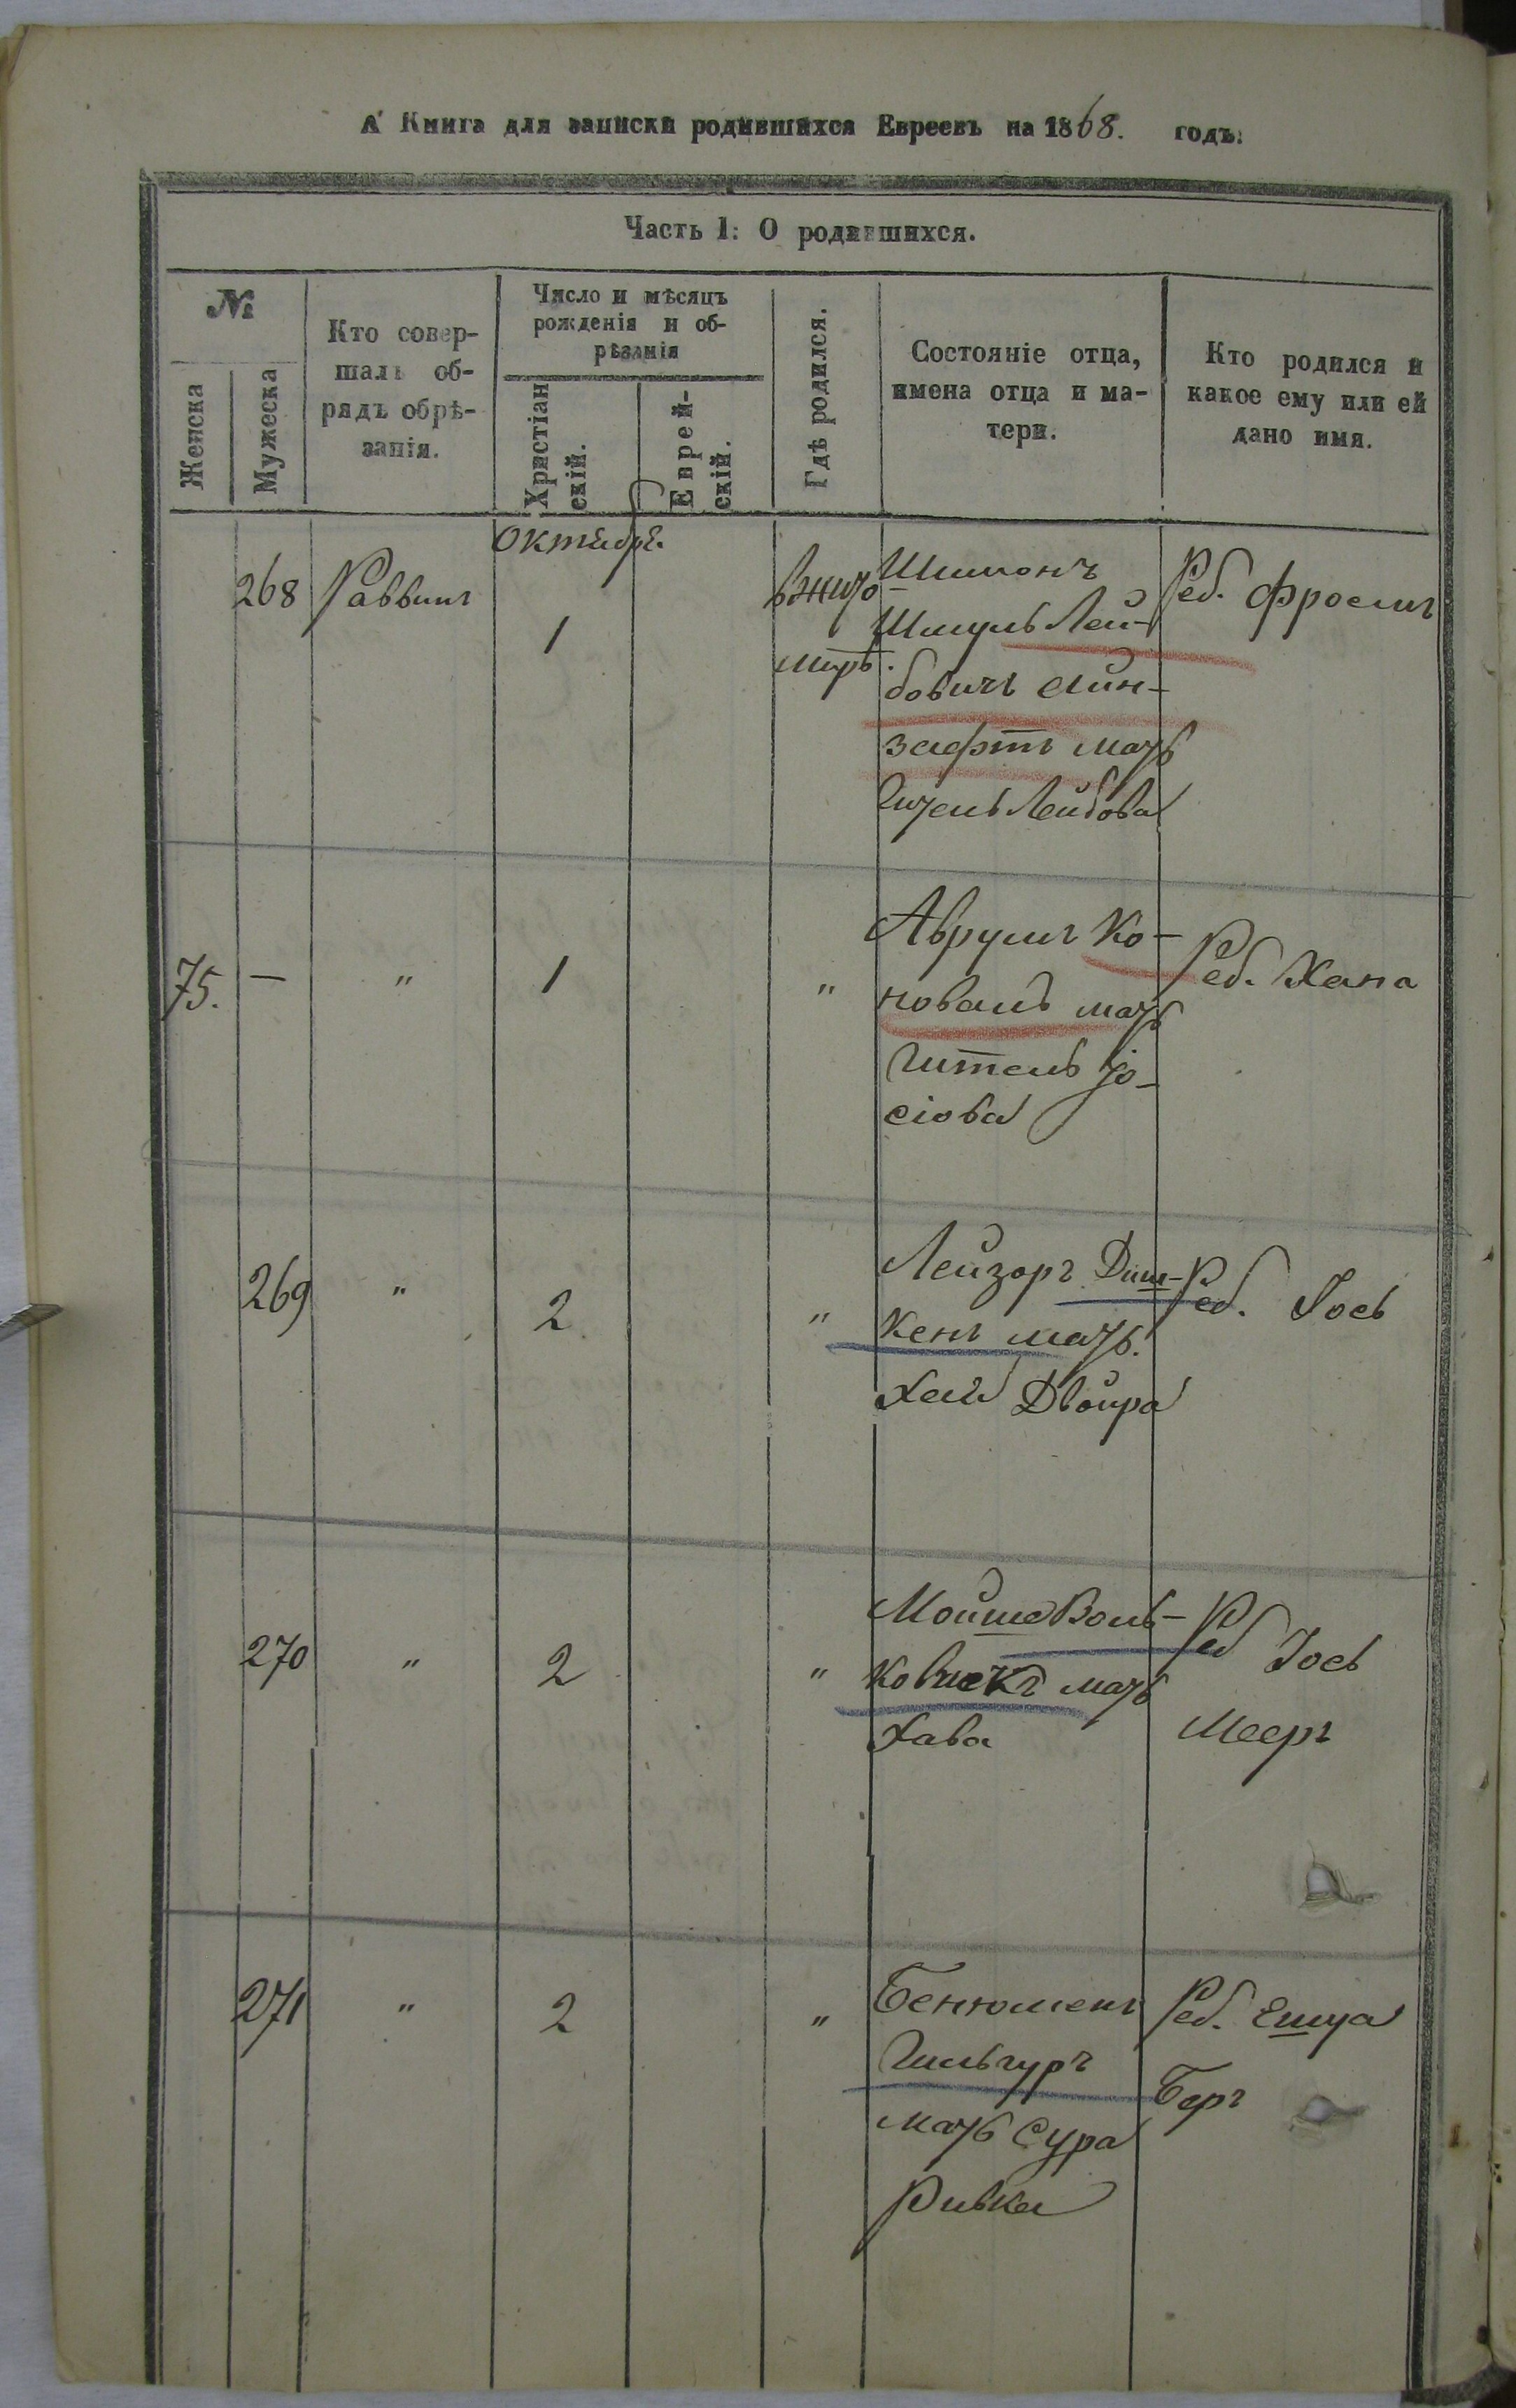 А Книга для записки родившихся Евреевъ на 1868. годъ.
Часть 1: О родившихся.
№
Женска
Мужеска
Кто совер-
шалъ об-
рядъ обрѣ-
занія.
Число и мѣсяцъ
рожденія и об-
рѣзанія
Христіан
скій.
Еврей-
скій.
Гдѣ родился.
Состояніе отца,
имена отца и ма-
тери.
Кто родился и
какое ему или ей
дано имя.
Октября
268 Раввинъ 1
Шимонъ
Шмуль Лей-
бовичъ
зафтъ мать
Лейбова
Реб. Фроимъ
75. — " 1 "
Аврумъ Ко-
новалъ мать
Гитель Іо-
сіова
Реб. Хана
269 " 2 "
Лейзоръ Диш-
кенъ мать.
Хая Двойра
Реб. Іось
270 " 2 "
Мойше Воль-
мать
Хава
Реб Іось
Мееръ
271 " 2 "
Бенюменъ
Гильгуръ
мать Сура
Ривка
Реб. Ешуа
Беръ